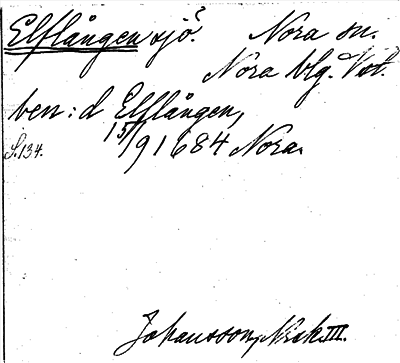 Elflången sjö? Nora sn.
Nora blg. Vst.
ben: d Elflången,
15/9 1684 Nora.
S. 134.
Johansson, Nick III.